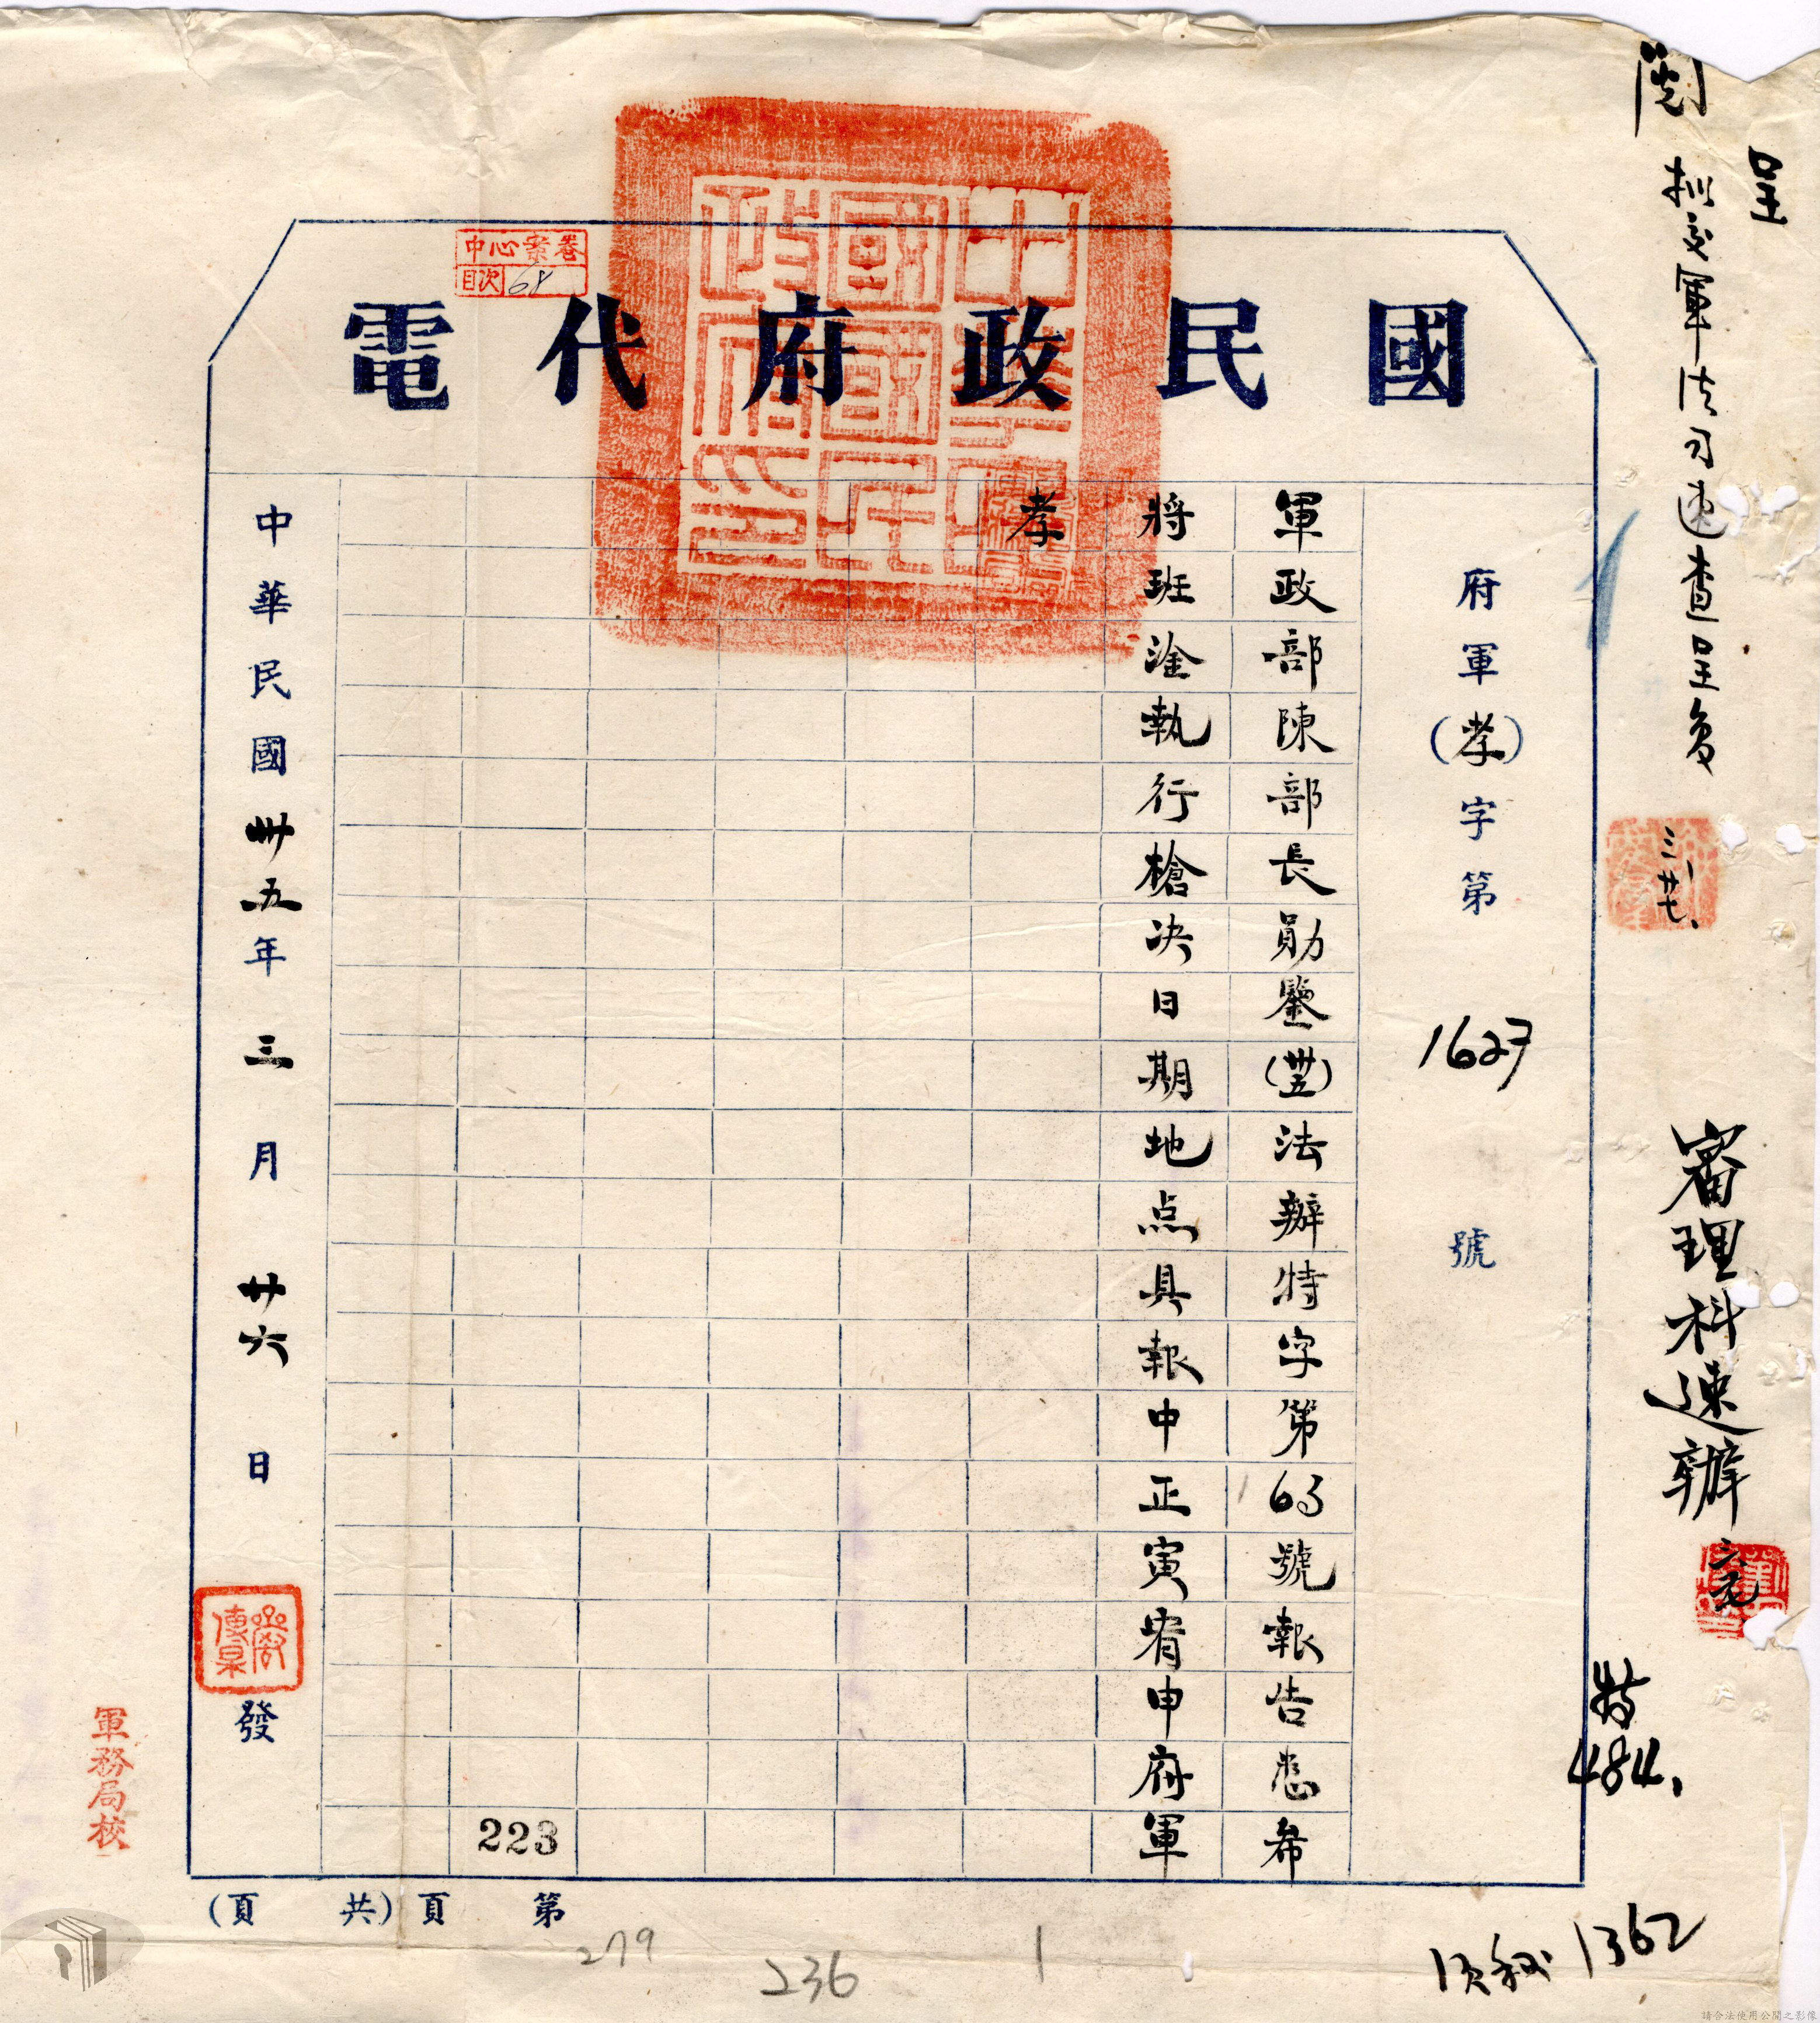 呈
閱
擬交軍法司速查呈復
三廿七.
審理科速辦
特484.
1362
國民政府代電
中心案卷
目次 68
府軍(孝)字第1627號
軍政部陳部長勛鑒(卅五)法辦特字第63號報告悉希
將班淦執行槍决日期地点具報中正寅宥申府軍
孝
中華民國國民政府之印
中華民國卅五年三月廿六日發
軍務局校
223
第 頁(共 頁)
279
236
1
請合法使用公開之影像